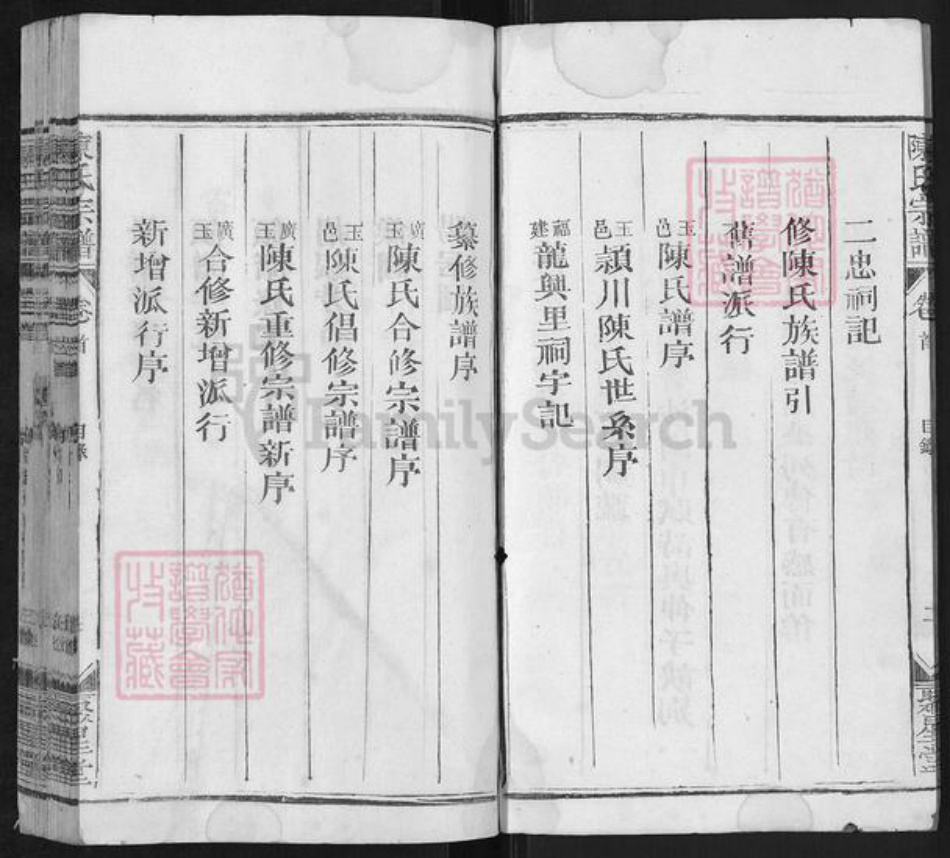 陳氏宗譜
卷首
目錄
二
聚星堂
二忠祠記
修陳氏族譜引
舊譜派行
玉邑陳氏譜序
玉邑潁川陳氏世系序
福建龍興里祠宇記
纂修族譜序
廣玉陳氏合修宗譜序
玉邑陳氏倡修宗譜序
廣玉陳氏重修宗譜新序
廣玉合修新增派行
新增派行序
陳氏宗譜
卷首
目錄
聚星堂
譜學會
收藏
FamilySearch